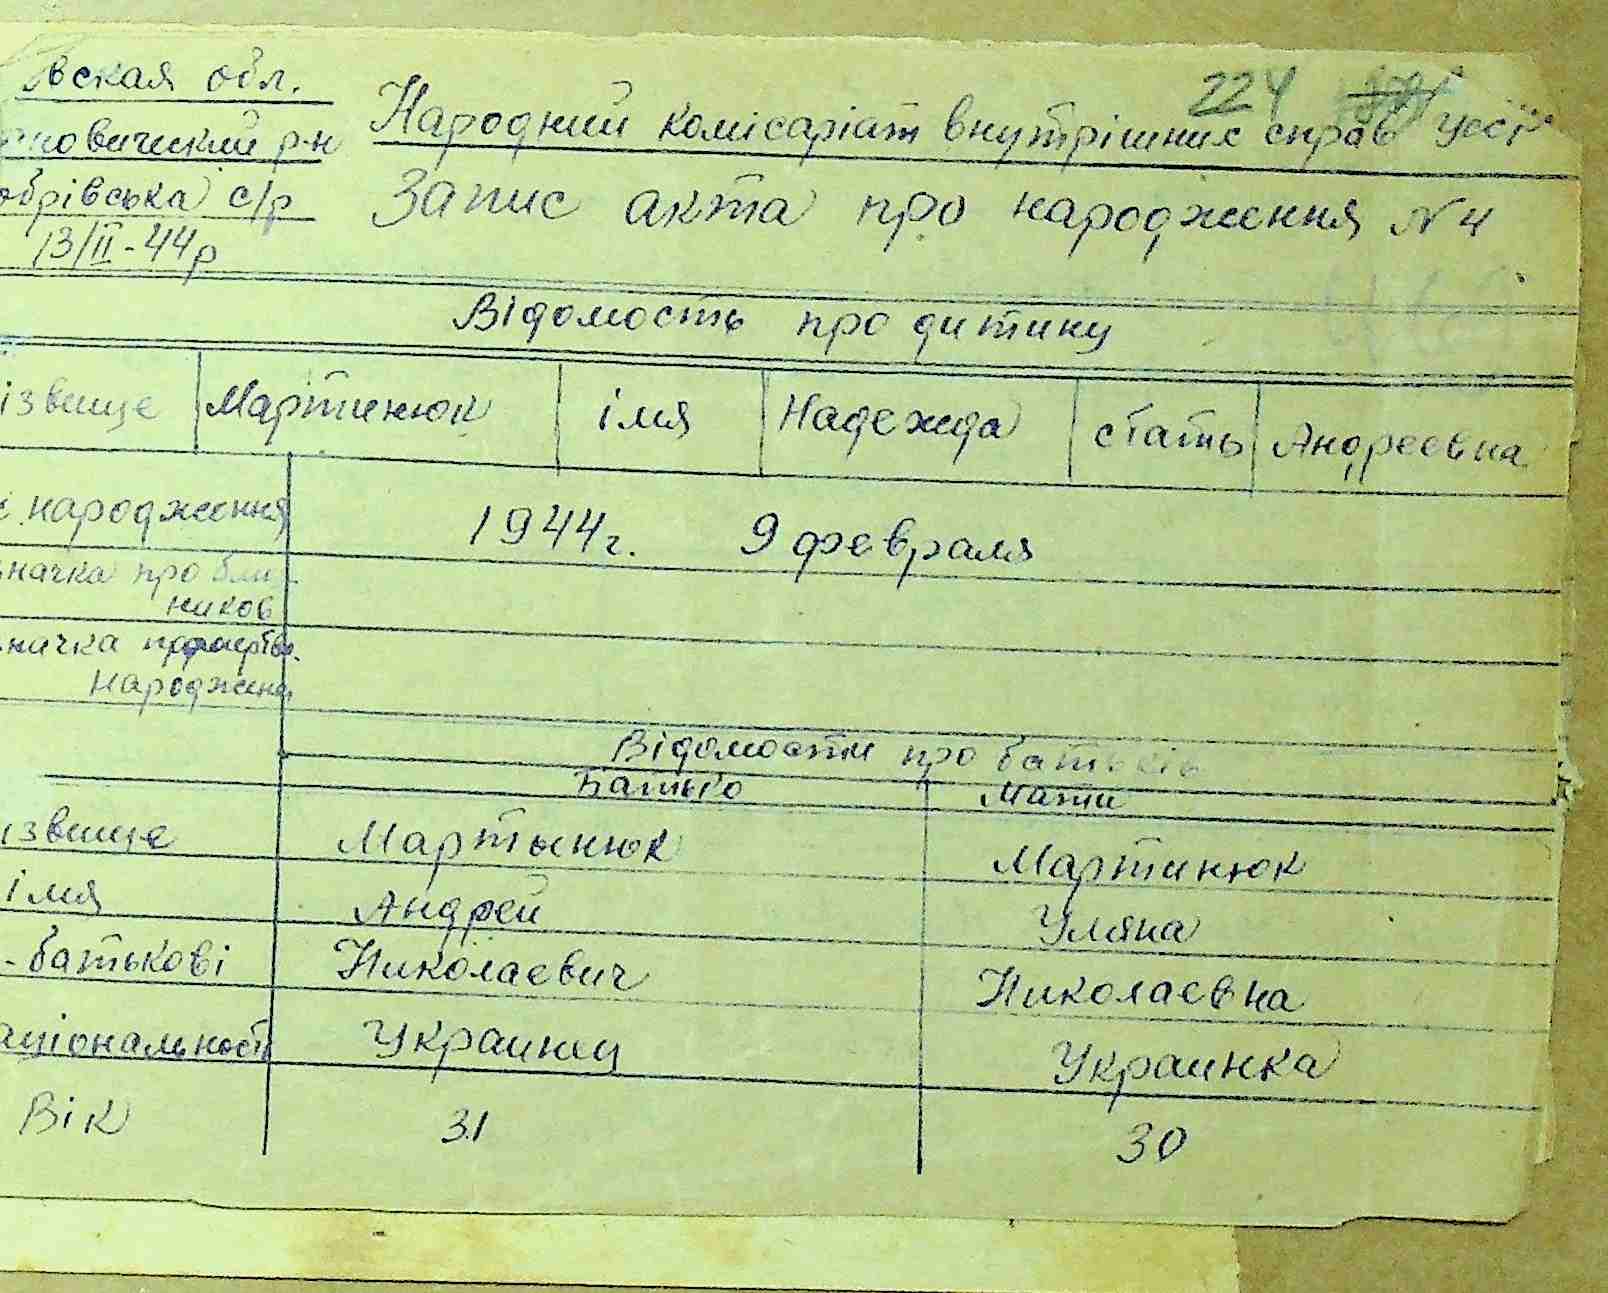 вская обл.
новический р-н
обрівська с/р
13/II-44р
224
Народний комісаріат внутрішних справ УССР
Запис акта про народження N 4
Відомость про дитину
ізвище Мартинюк імя Надежда стать Андреевна
народження 1944г. 9 февраля
начка про бли-
ников
начка про мертво-
народжени
Відомости про батьків
Батько Мати
ізвище Мартынюк Мартинюк
імя Андрей Уляна
-батькові Николаевич Николаевна
аціональность Украинец Украинка
Вік 31 30